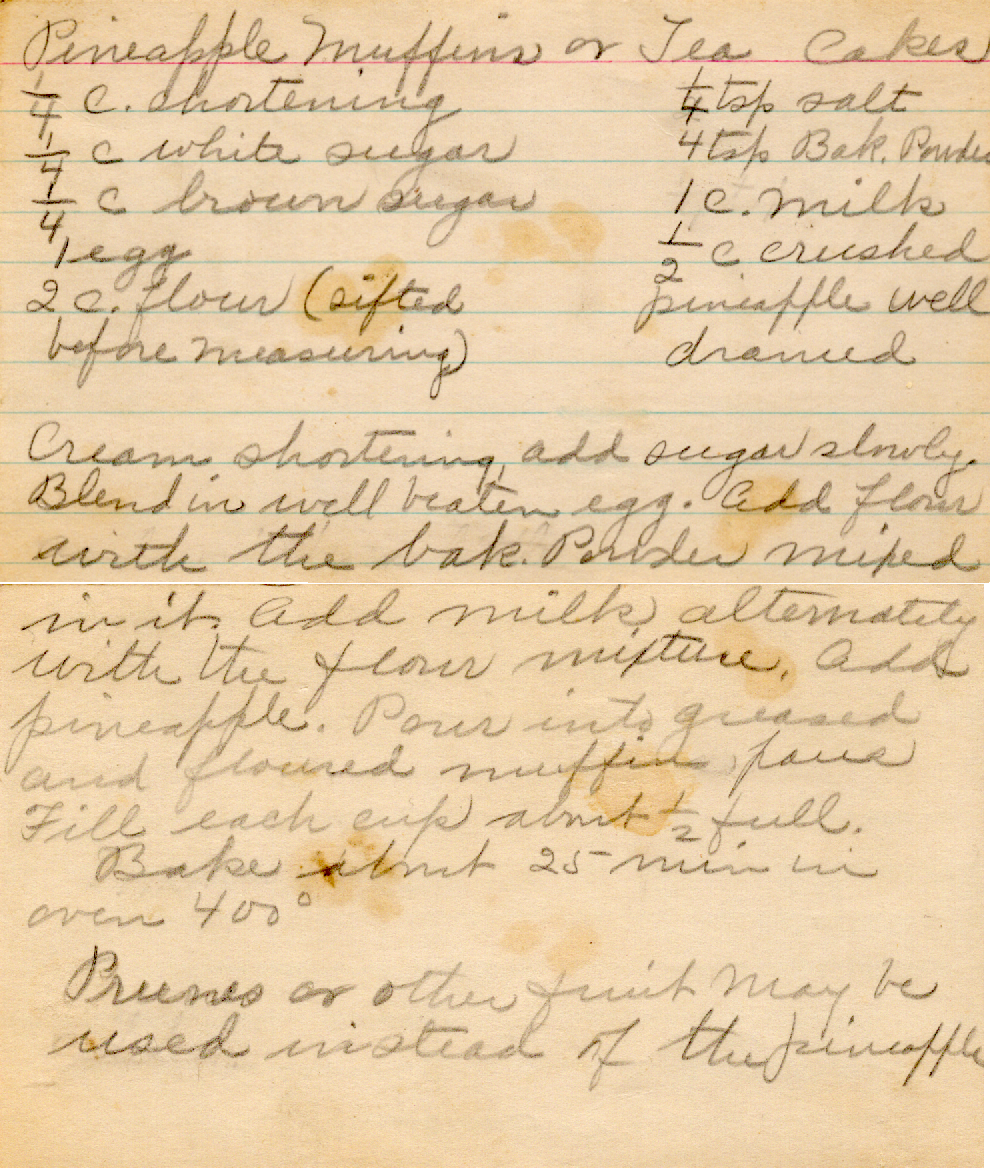 Pineapple Muffins or Tea Cakes
1/4 c. shortening
1/4 c white sugar
1/4 c brown sugar
1 egg
2 c. flour (sifted
before measuring)
1/4 tsp salt
4 tsp Bak. Powder
1 c. milk
1/2 c crushed
pineapple well
drained
Cream shortening, add sugar slowly.
Blend in well beaten egg. Add flour
with the bak. Powder mixed
in it. Add milk alternately
with the flour mixture. Add
pineapple. Pour into greased
and floured muffin pans
Fill each cup about 1/2 full.
Bake about 25 min in
oven 400°
Prunes or other fruit may be
used instead of the pineapple